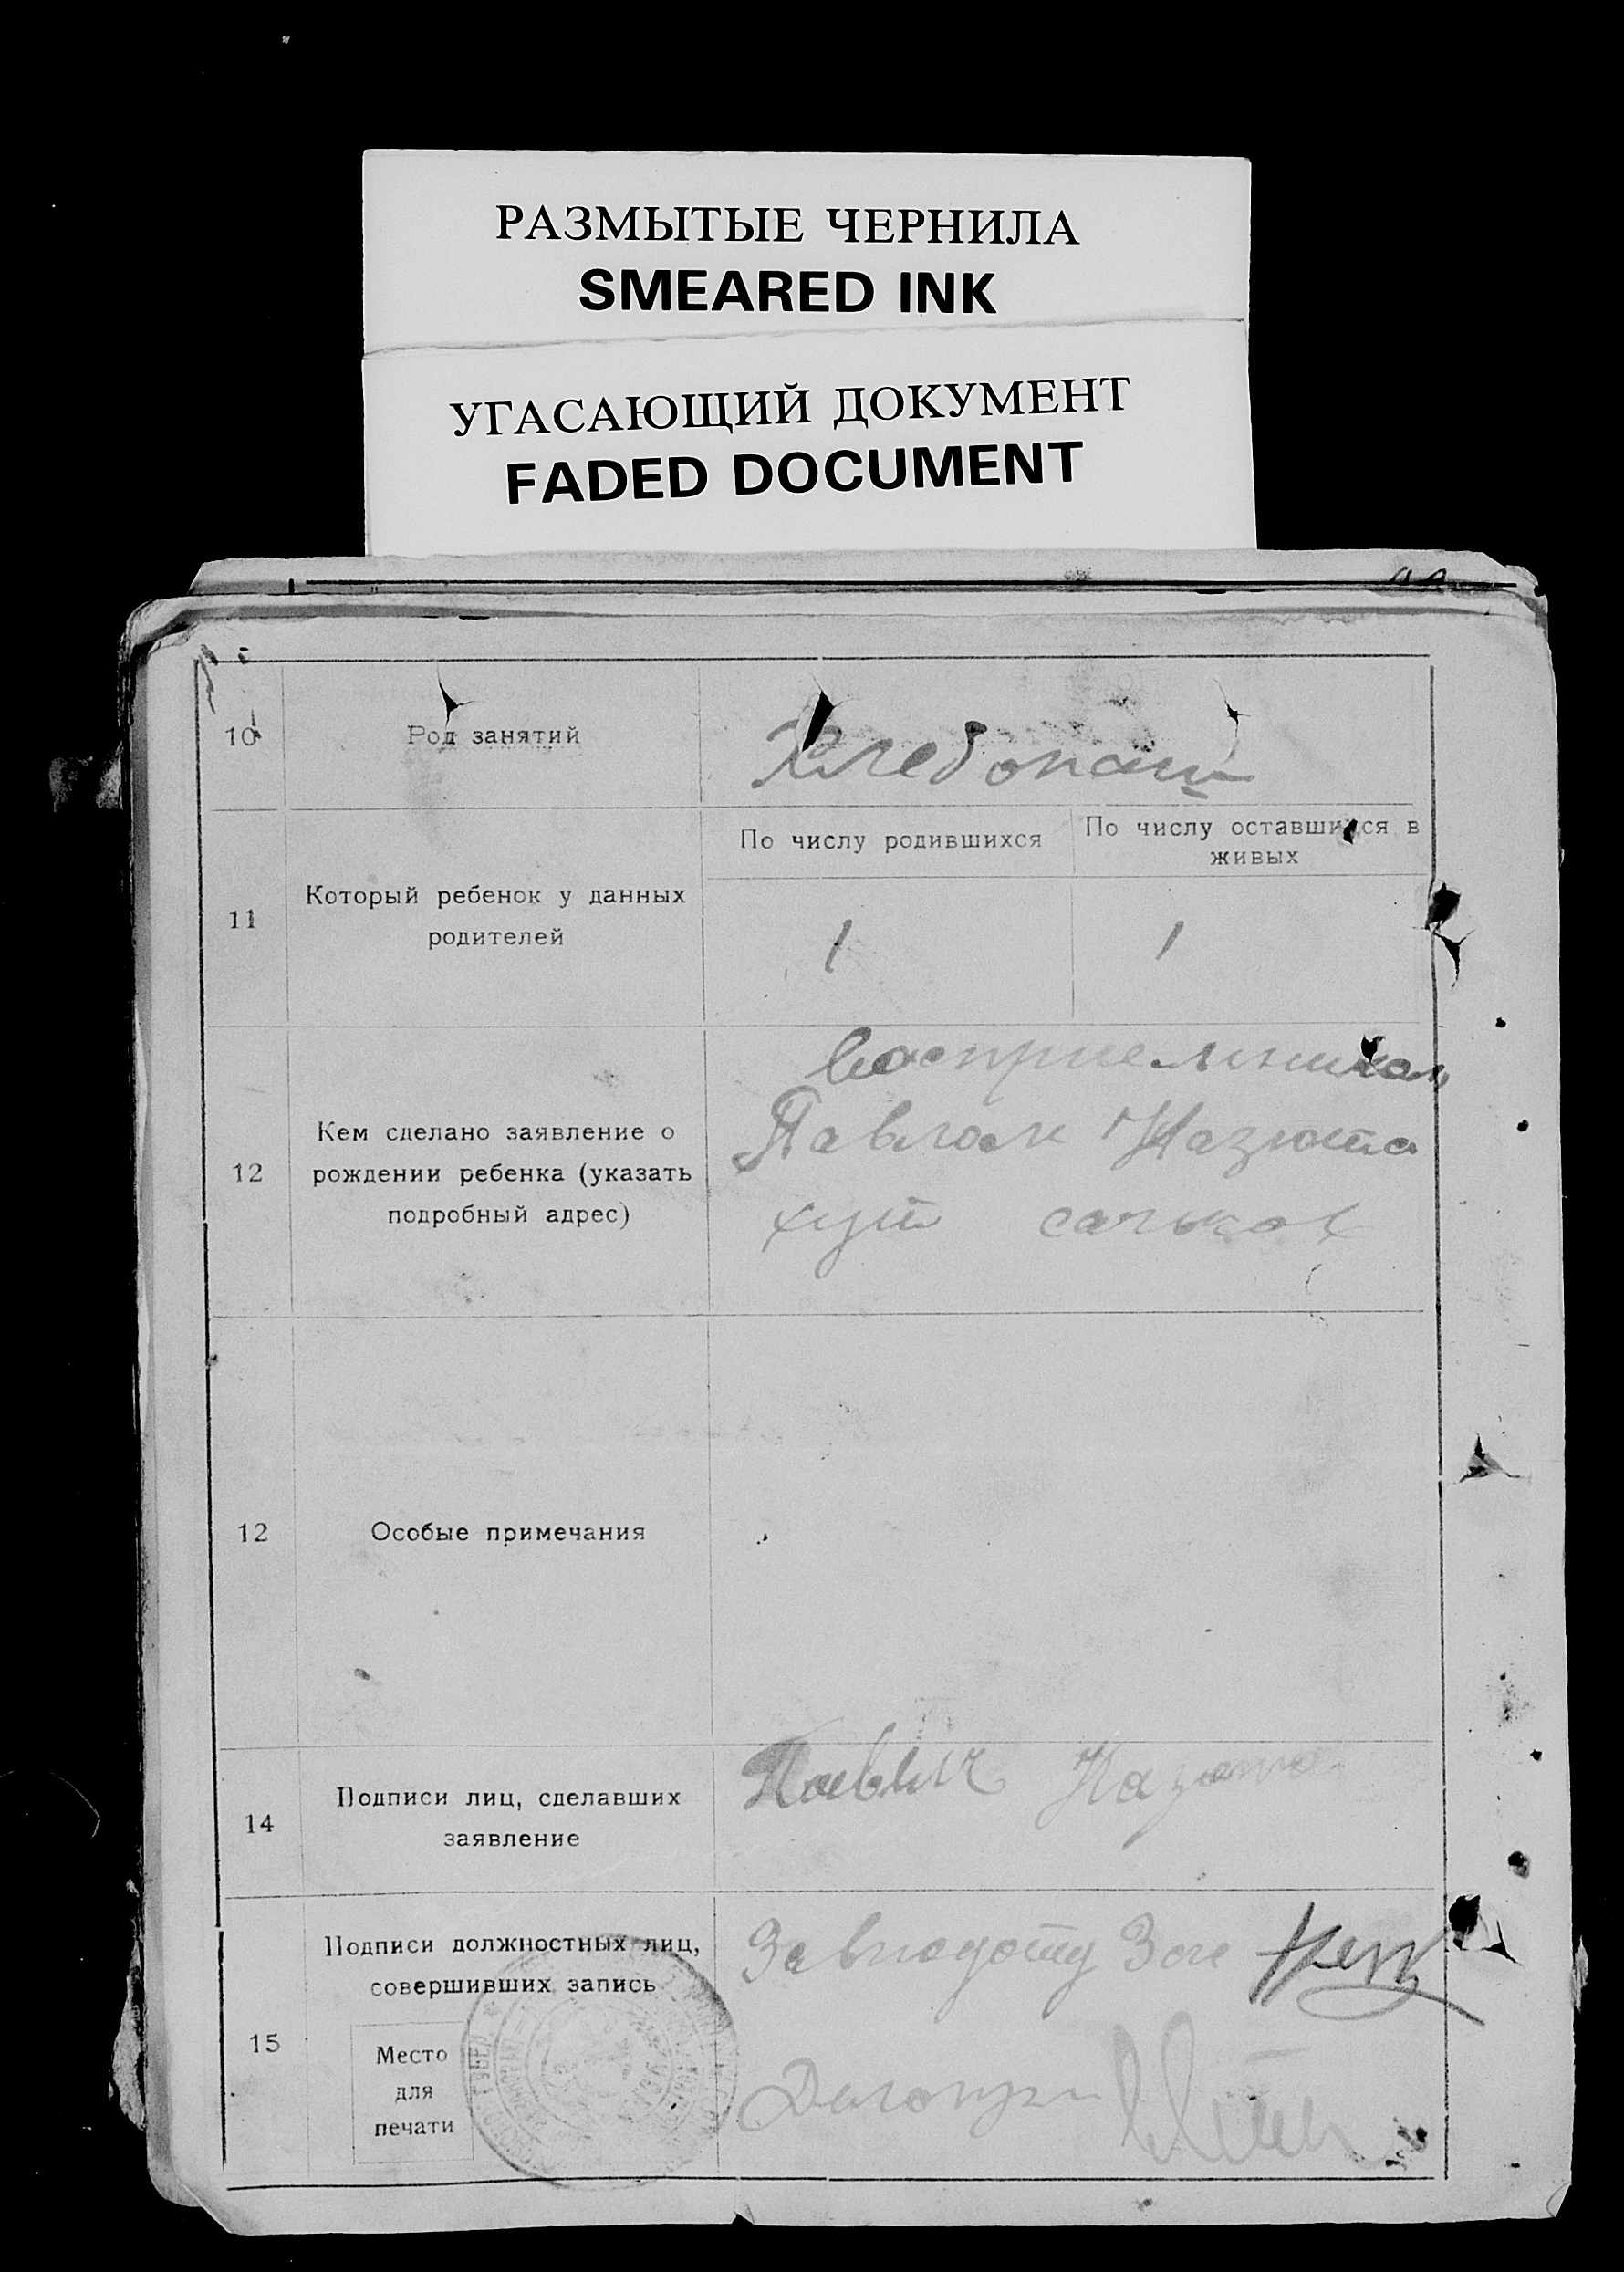 РАЗМЫТЫЕ ЧЕРНИЛА
SMEARED INK
УГАСАЮЩИЙ ДОКУМЕНТ
FADED DOCUMENT
10
Род занятий
Хлебопаш
11
Который ребенок у данных
родителей
По числу родившихся
По числу оставшихся в
живых
1
1
12
Кем сделано заявление о
рождении ребенка (указать
подробный адрес)
восприемником
Павлом
хут
12
Особые примечания
14
Подписи лиц, сделавших
заявление
15
Подписи должностных лиц,
совершивших запись
Место
для
печати
Делопр